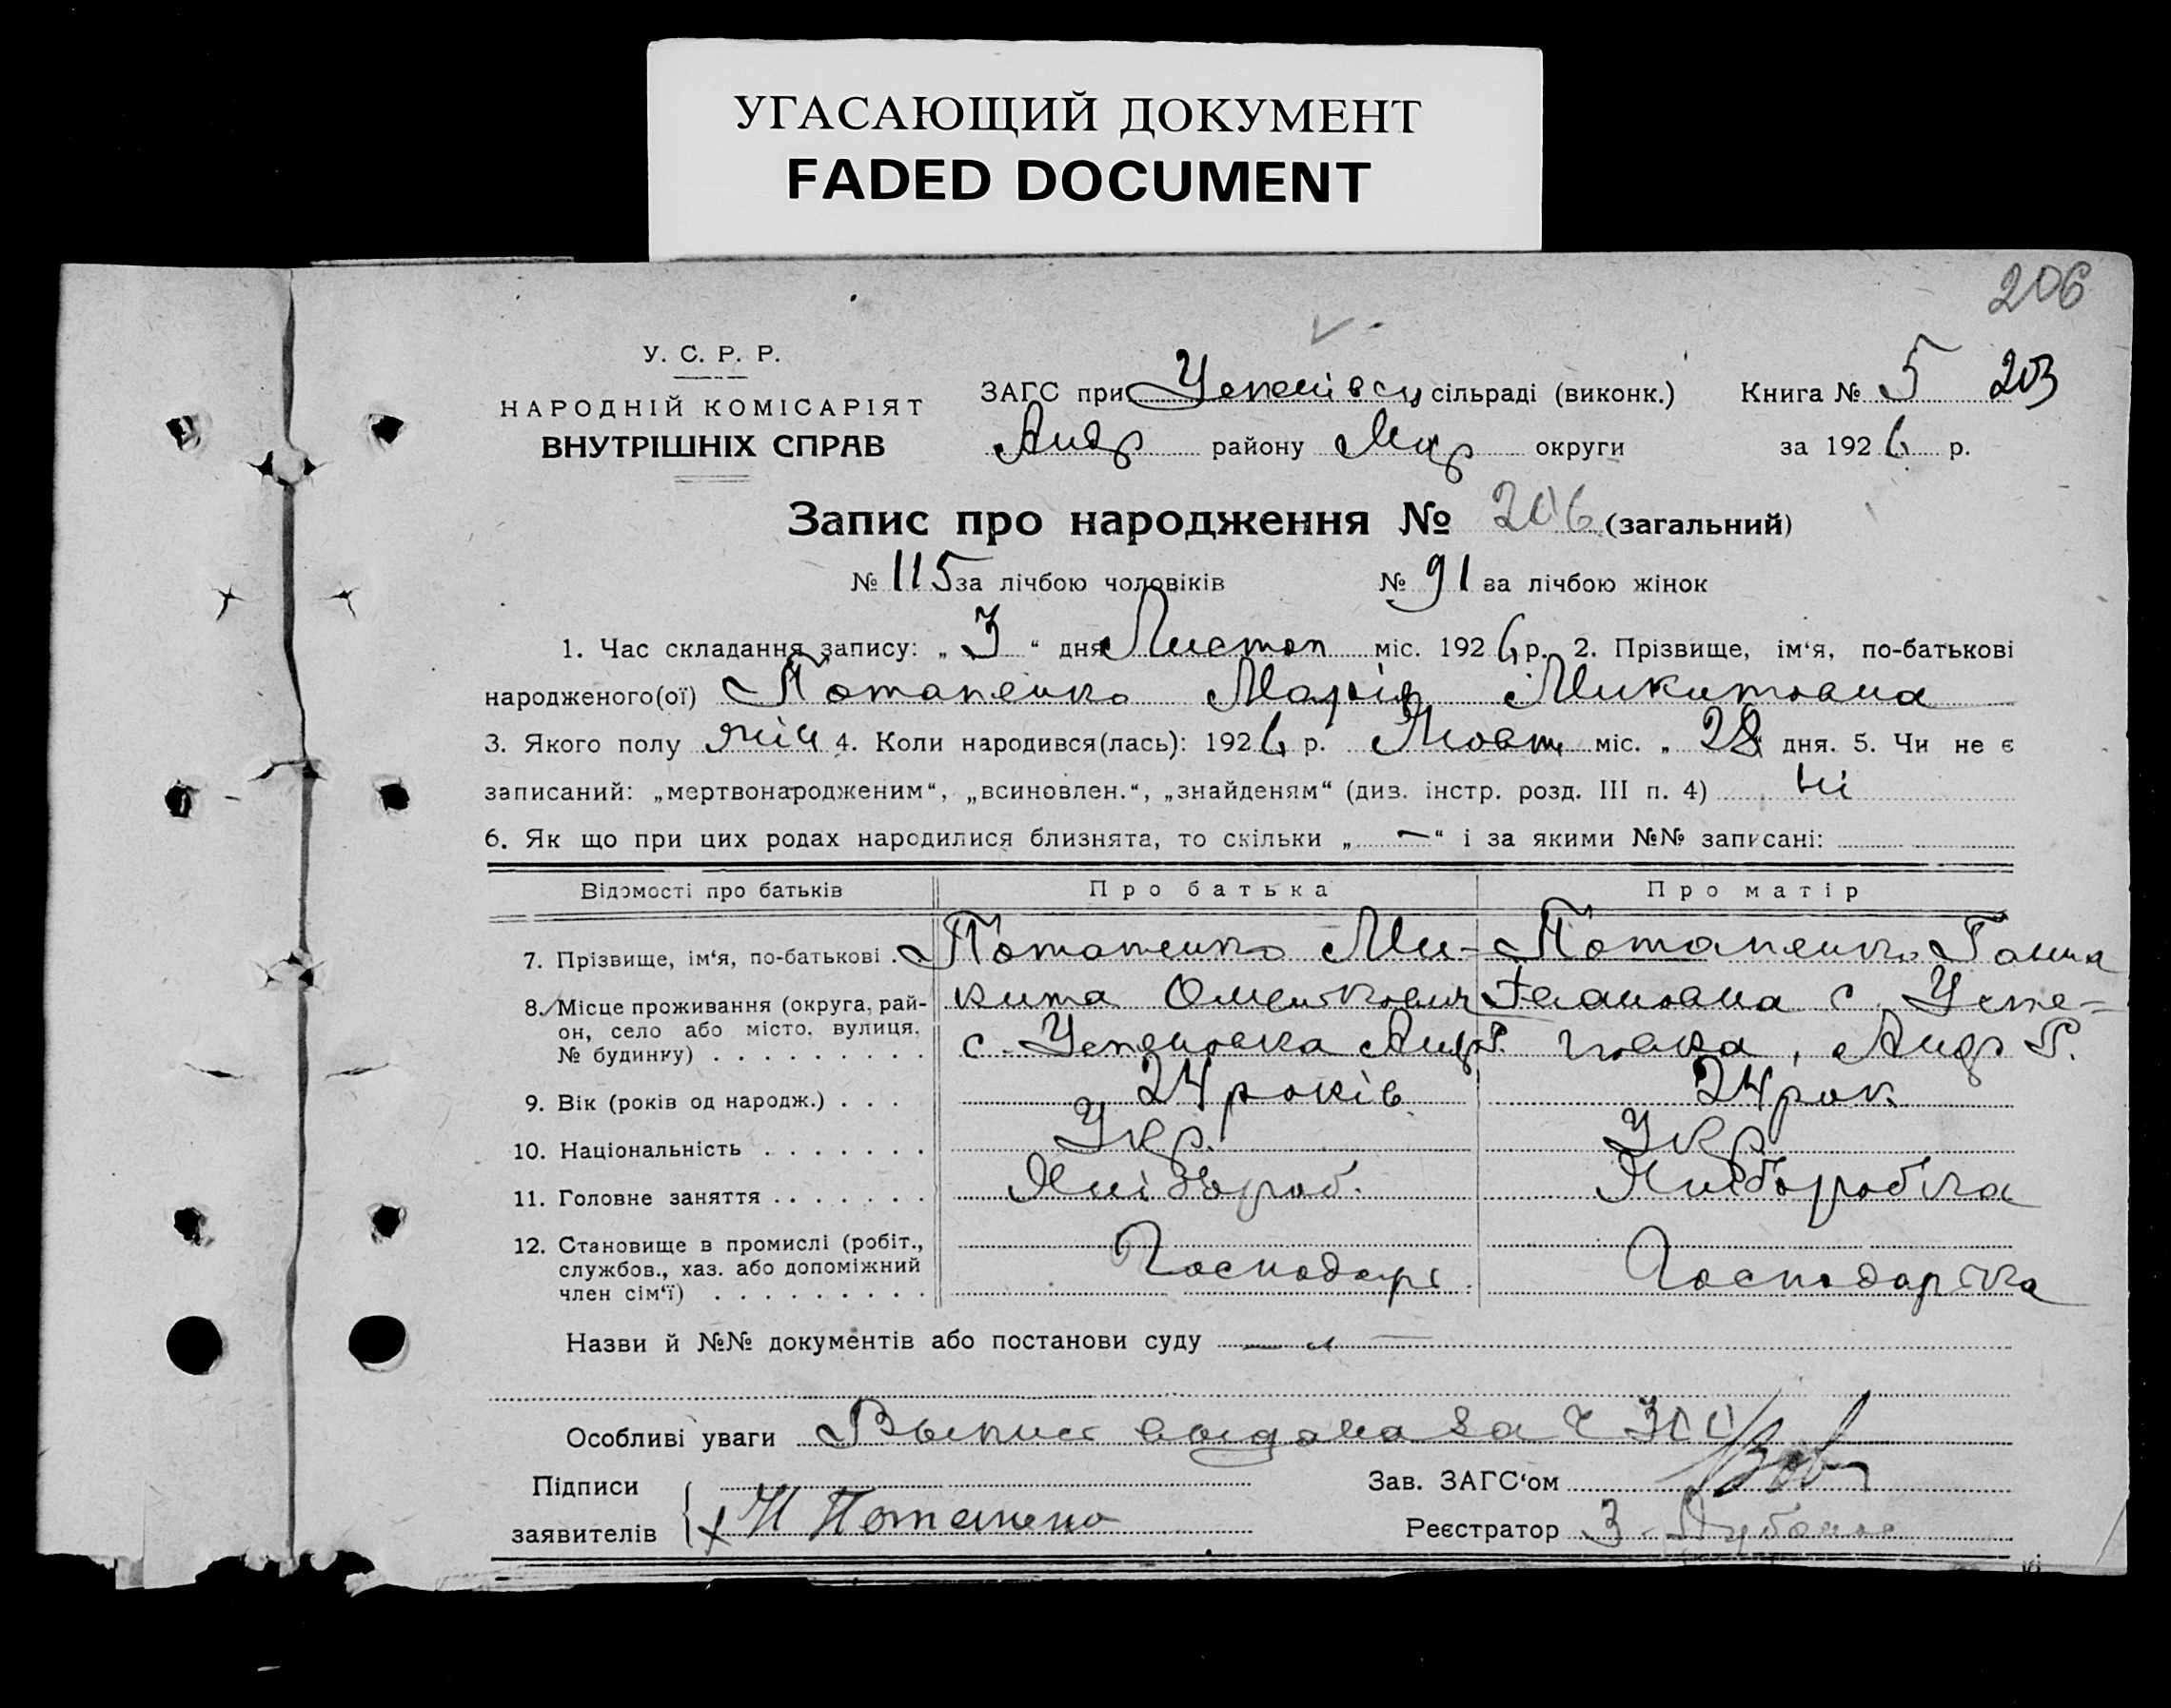 УГАСАЮЩИЙ ДОКУМЕНТ
FADED DOCUMENT
206
У. С. Р. Р.
НАРОДНІЙ КОМІСАРІЯТ
ВНУТРІШНІХ СПРАВ
ЗАГС при Успенівськ сільраді (виконк.) Книга № 5 203
Андр району Мар округи за 1926 р.
Запис про народження № 206 (загальний)
№ 115 за лічбою чоловіків № 91 за лічбою жінок
1. Час складання запису: „ 3 “ дня Листоп міс. 1926 р. 2. Прізвище, ім‘я, по-батькові
народженого(ої) Потапенко Марія Микитовна
3. Якого полу жін 4. Коли народився(лась): 1926 р. Жовт міс. „ 28 “ дня. 5. Чи не є
записаний: „мертвонародженим“, „всиновлен.“, „знайденям“ (див. інстр. розд. III п. 4) ні
6. Як що при цих родах народилися близнята, то скільки „ — “ і за якими №№ записані:
Відомості про батьків Про батька Про матір
7. Прізвище, ім‘я, по-батькові . . Потапенко Ми- Потапенко Ганна
8. Місце проживання (округа, рай- кита с. Успе-
он, село або місто, вулиця, с. Успеновка Андр. новка, Андр Р.
№ будинку) . . . . . . . . .
9. Вік (років од народж.) . . . 24 років 24 рок
10. Національність . . . . . . . Укр. Укр.
11. Головне заняття . . . . . . . Хлібороб. Хліборобка
12. Становище в промислі (робіт.,
службов., хаз. або допоміжний Господарь Господарька
член сім‘ї) . . . . . . . . .
Назви й №№ документів або постанови суду —
Особливі уваги Выпись выдана за
Підписи Зав. ЗАГС‘ом
заявителів х Н Потапенко Реєстратор З